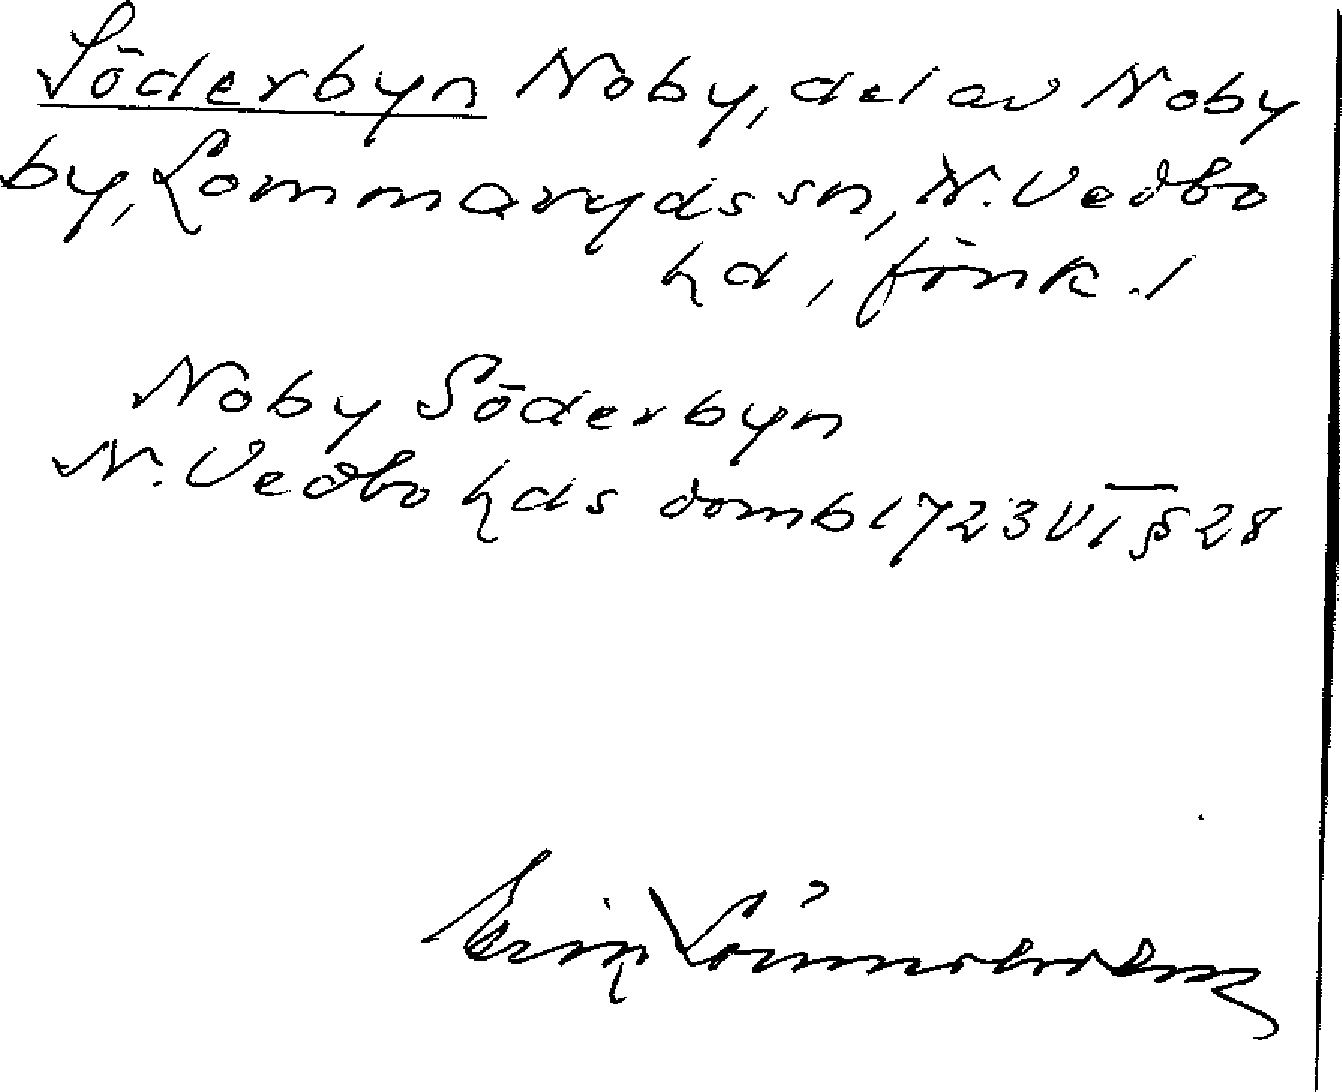 Söderbyn Noby, del av Noby
by, Lommaryds sn, N. Vedbo
hd, Jönk. l
Noby Söderbyn
N. Vedbo hds domb 1723 VI § 28
Erik